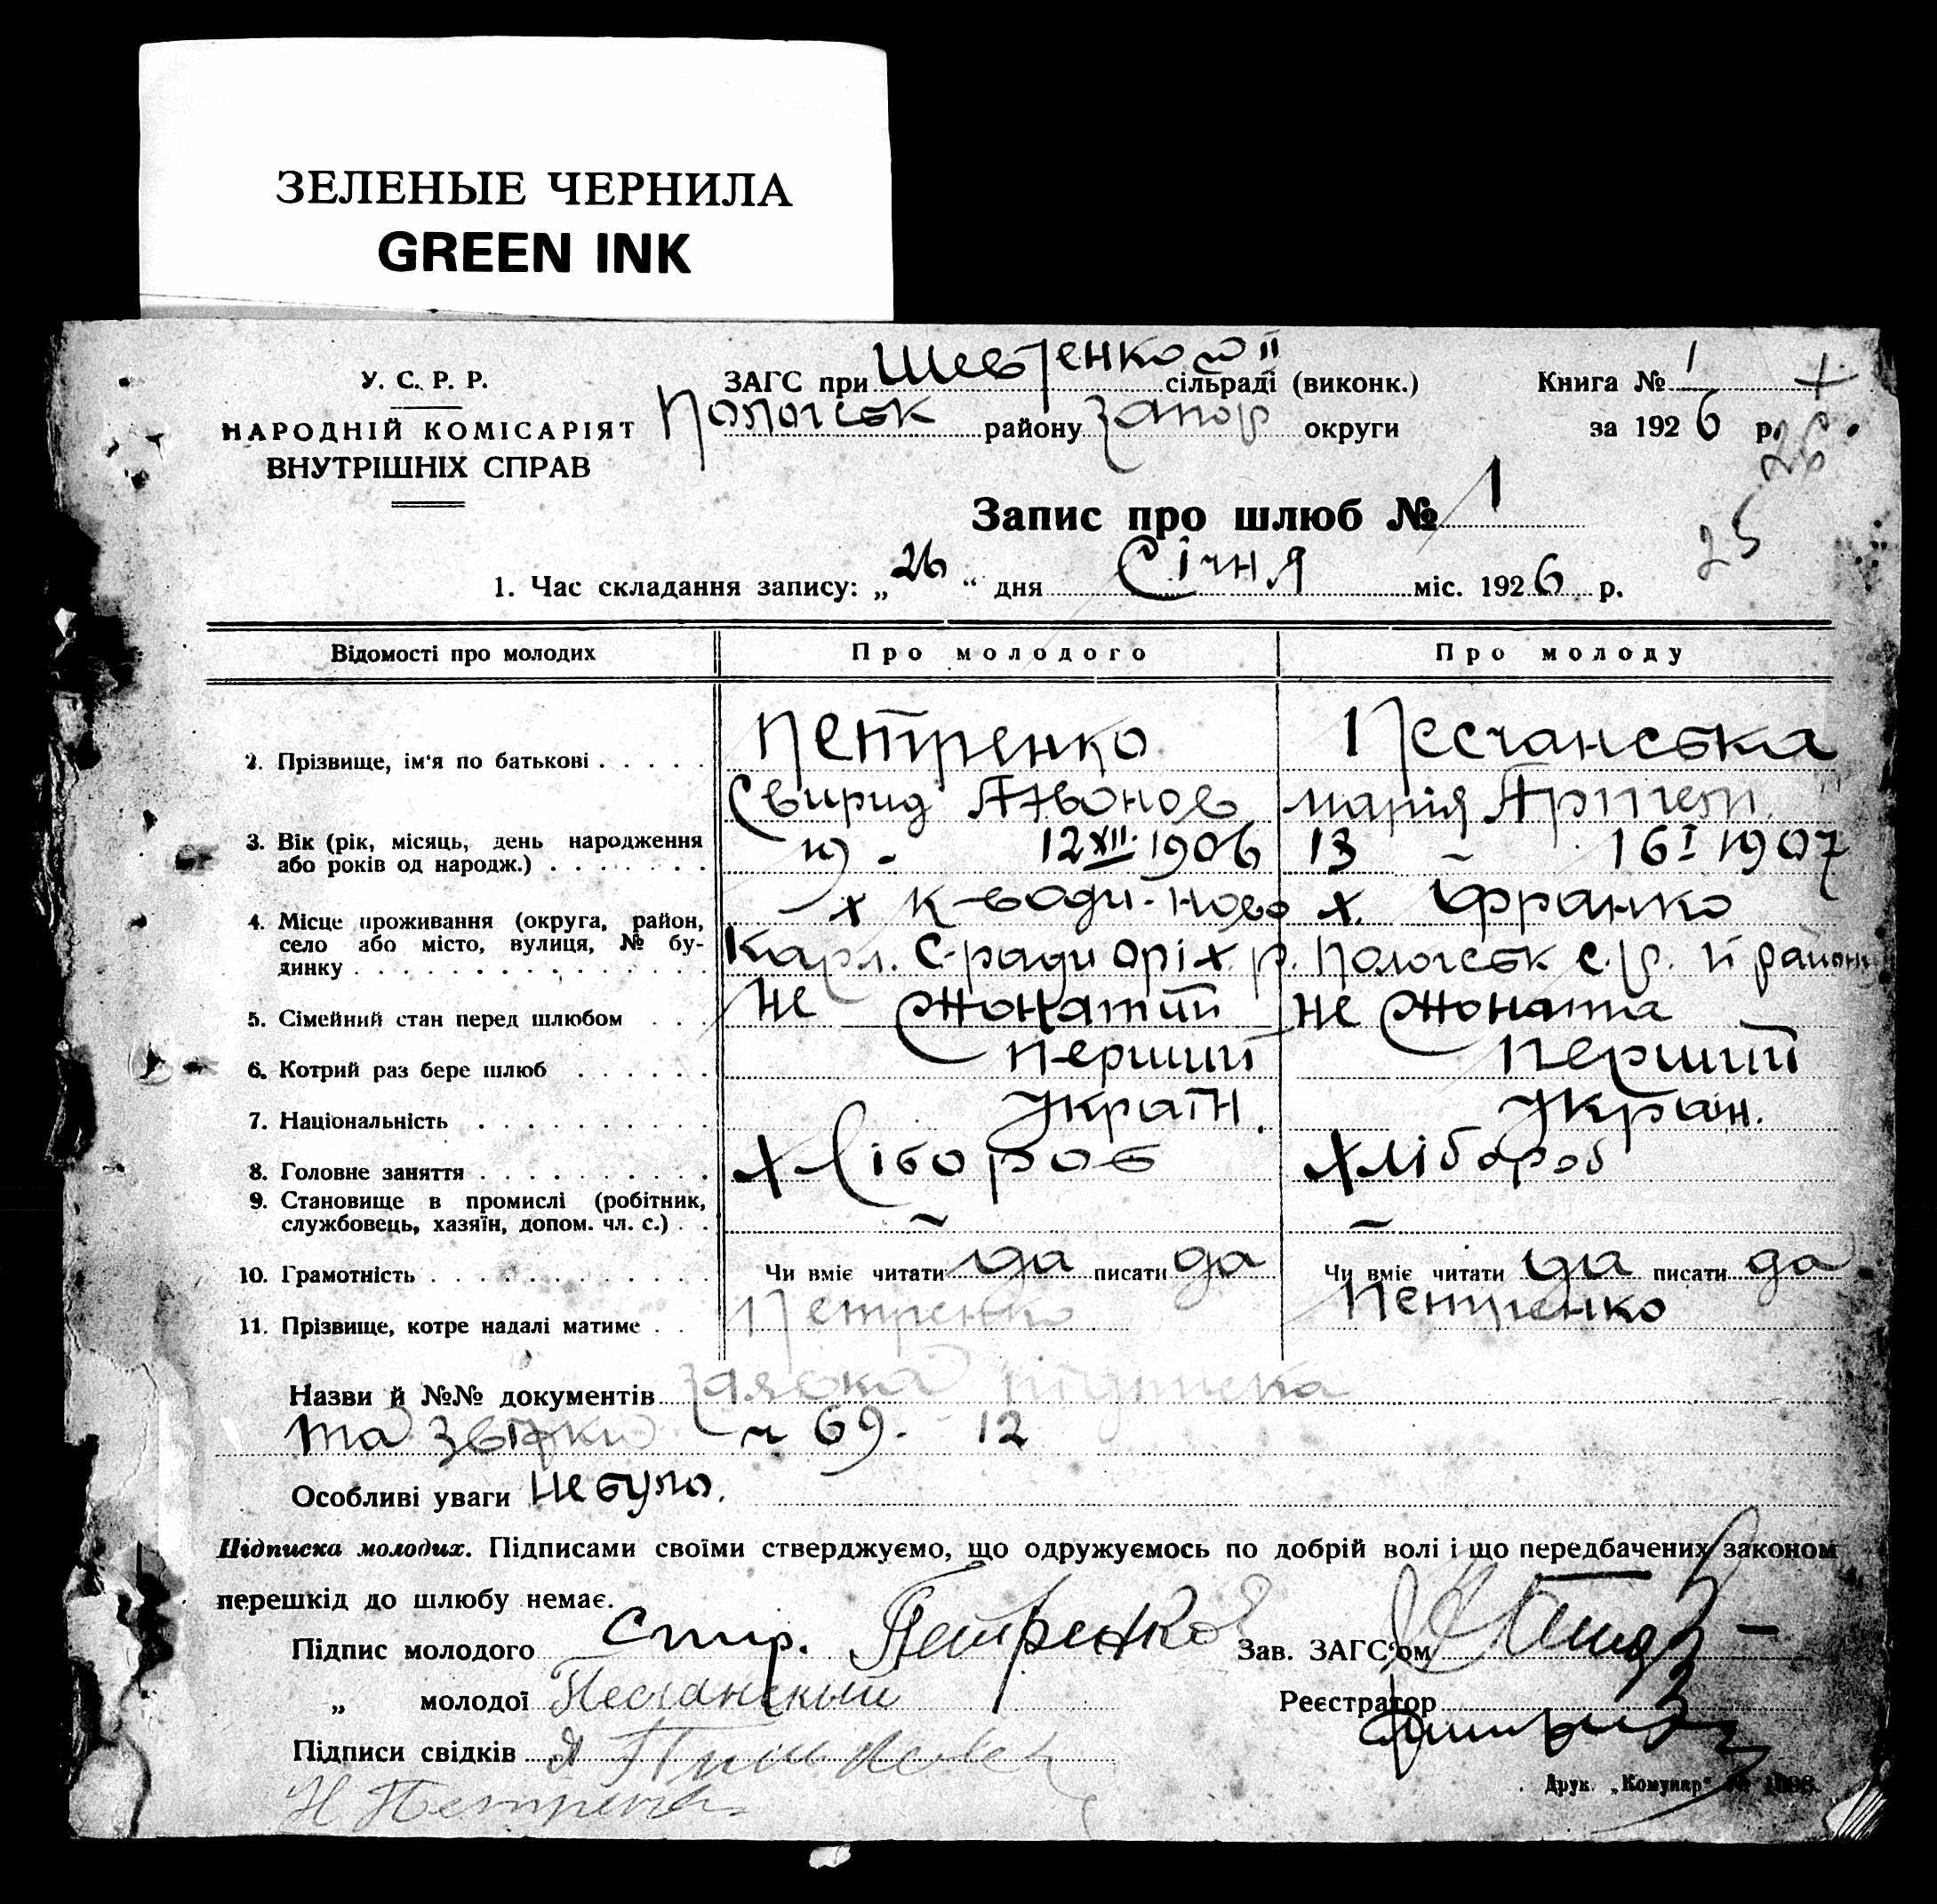 ЗЕЛЕНЫЕ ЧЕРНИЛА
GREEN INK
У. С. Р. Р.
НАРОДНІЙ КОМІСАРІЯТ
ВНУТРІШНІХ СПРАВ
ЗАГС при сільраді (виконк.) Книга № 1
Пологівськ району Запор округи за 1926 р.
26
25
Запис про шлюб № 1
1. Час складання запису: „26“ дня Січня міс. 1926 р.
Відомості про молодих Про молодого Про молоду
2. Прізвище, ім'я по батькові Петренко Песчанська
Свирид Марія Артем.
3. Вік (рік, місяць, день народження або років од народж.) 19 - 12 XII 1906 16 I 1907
4. Місце проживання (округа, район, село або місто, вулиця, № будинку х К-води-Ново х. Франко
Карл. С-ради Оріх. р. с.р. П району
5. Сімейний стан перед шлюбом Не жонатий Не жоната
6. Котрий раз бере шлюб Перший Перший
7. Національність Україн. Україн.
8. Головне заняття Хлібороб Хлібороб
9. Становище в промислі (робітник, службовець, хазяїн, допом. чл. с.) - -
10. Грамотність Чи вміє читати да писати да Чи вміє читати да писати да
11. Прізвище, котре надалі матиме Петренко Петренко
Назви й №№ документів заявка підписка
та 69. 12
Особливі уваги Не було.
Підписка молодих. Підписами своїми стверджуємо, що одружуємось по добрій волі і що передбачених законом
перешкід до шлюбу немає.
Підпис молодого Петренко Зав. ЗАГС'ом
„ молодої Песчанскии Реєстратор
Підписи свідків
Н Петренко
Друк. „Комунар“